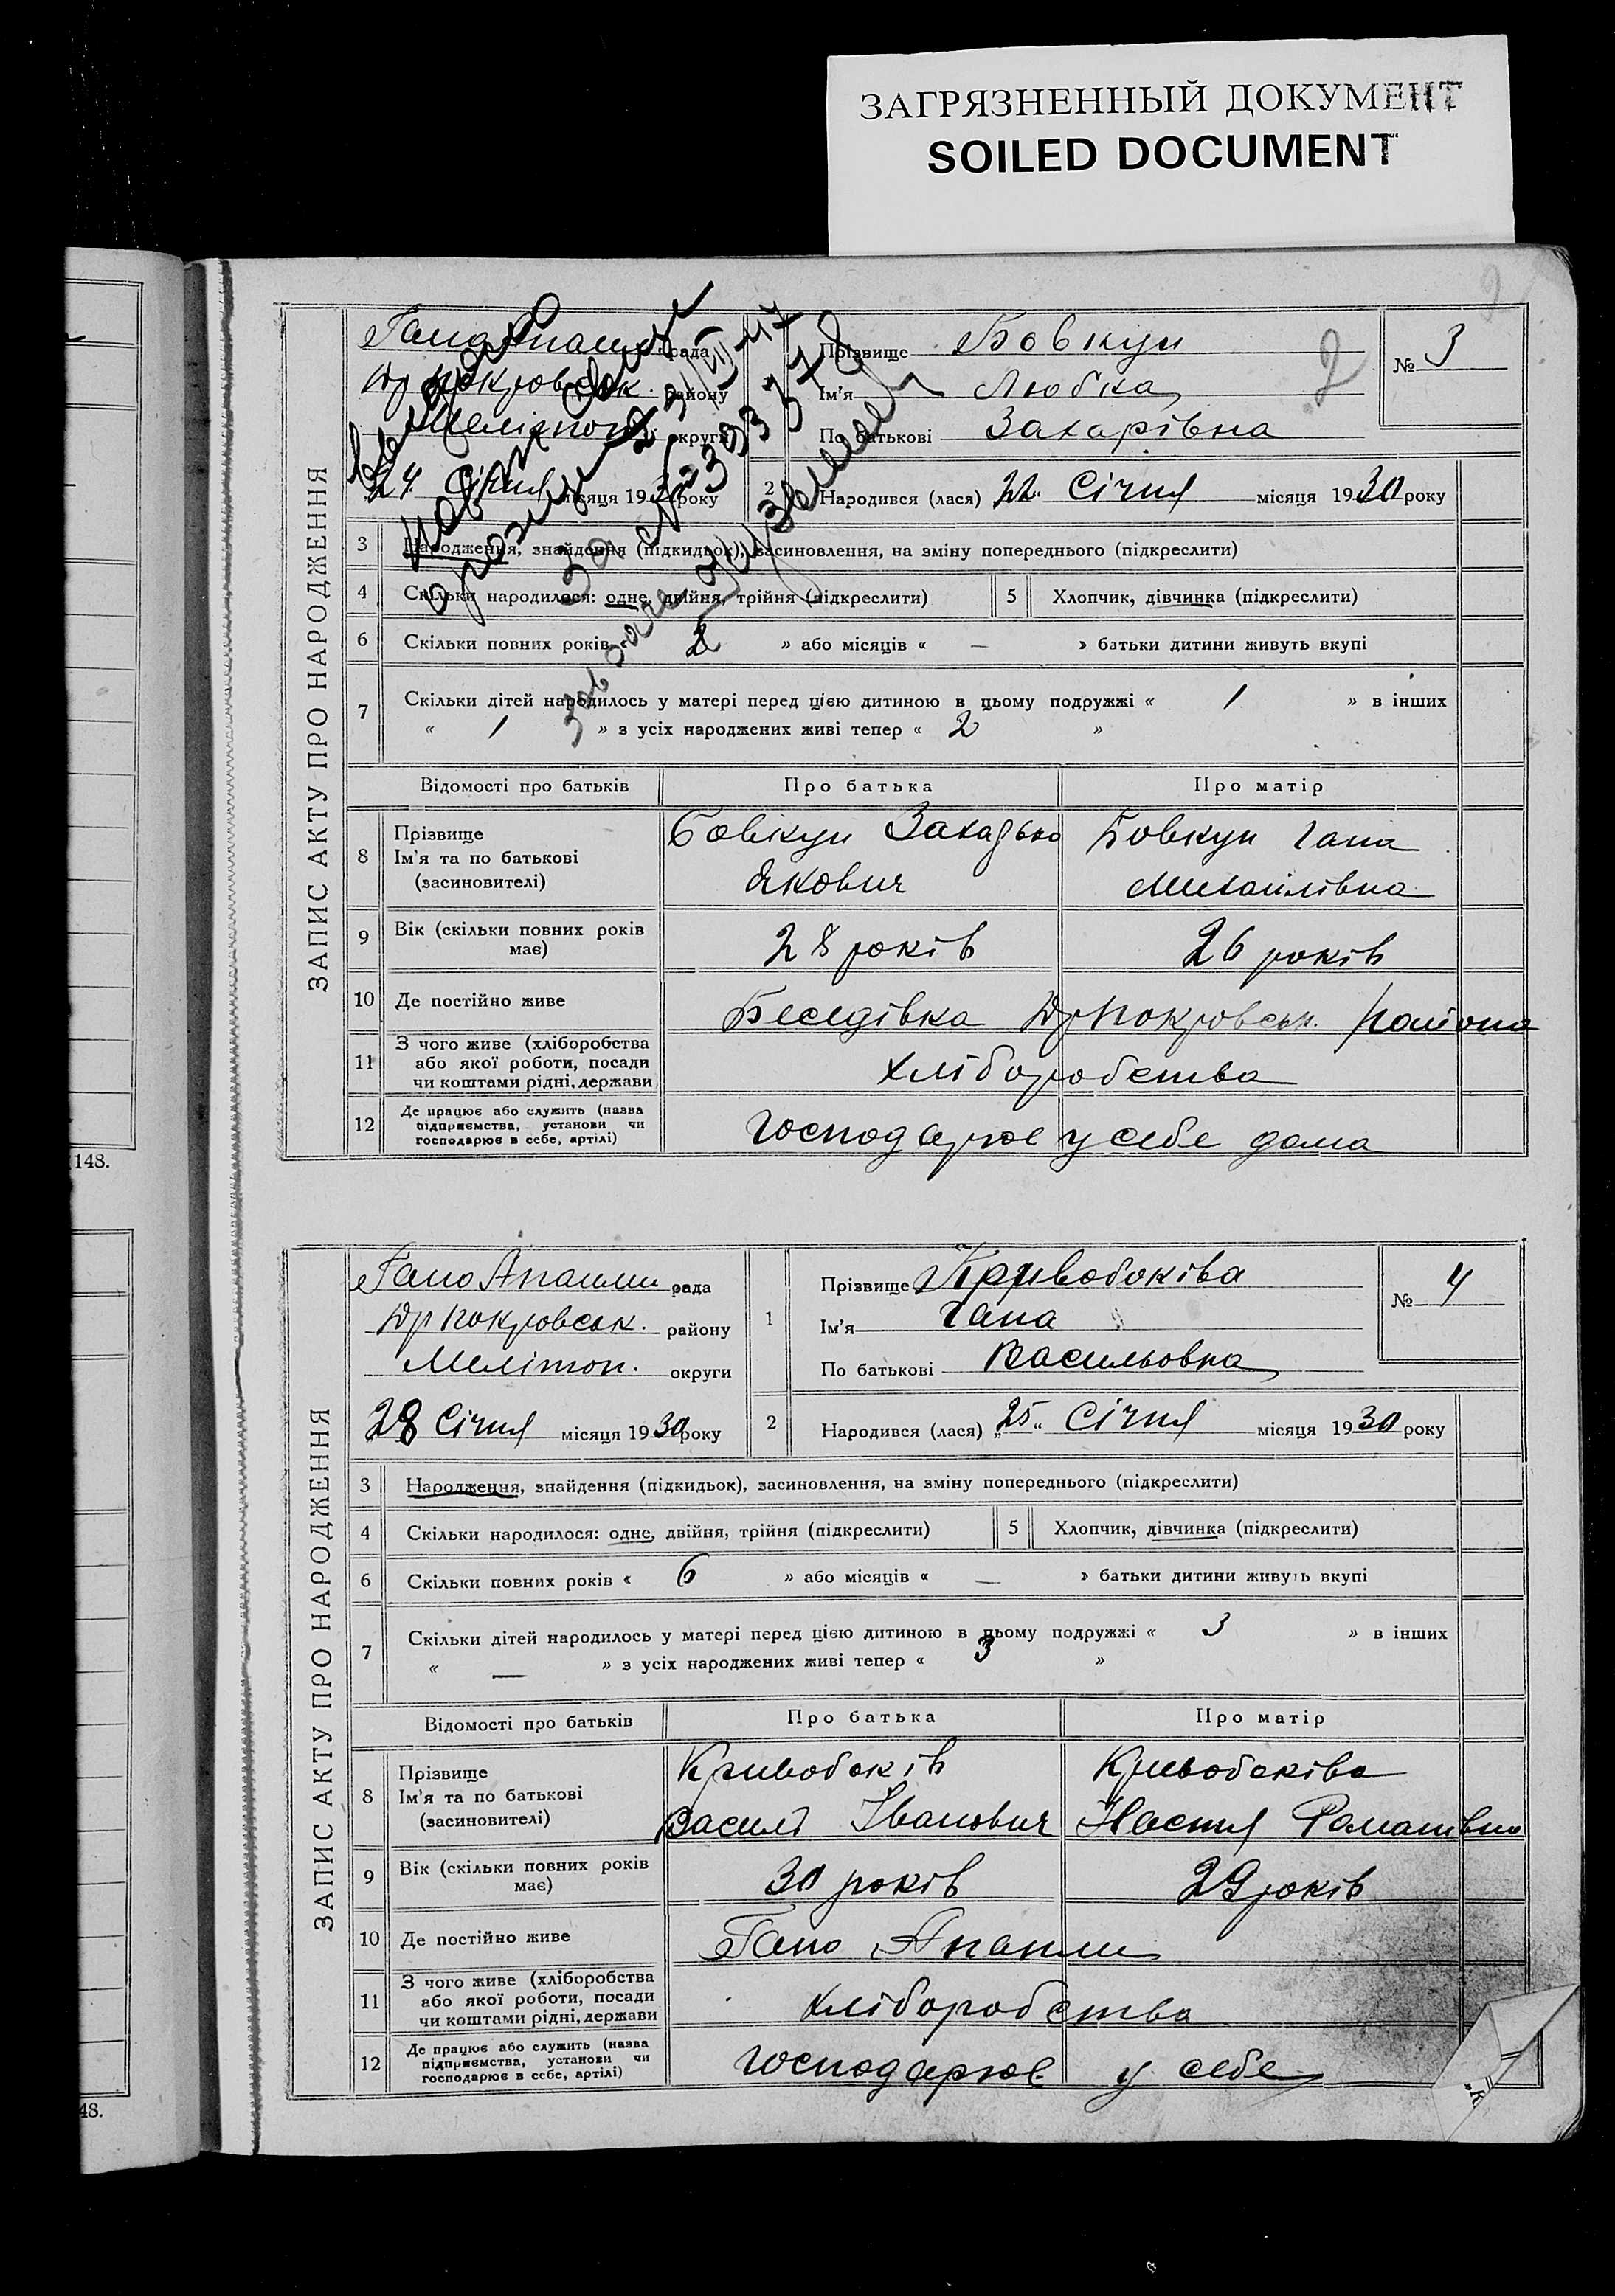 ЗАГРЯЗНЕННЫЙ ДОКУМЕНТ
SOILED DOCUMENT
148.
48.
2
ЗАПИС АКТУ ПРО НАРОДЖЕННЯ
рада
району
округи
24 Січня місяця 1930 року
31/VII-47
393378
Прізвище Бовкун
Ім'я Любка
По батькові Захарівна
№ 3
2 Народився (лася) 22 Січня місяця 1930 року
3 Народження, знайдення (підкидьок), засиновлення, на зміну попереднього (підкреслити)
4 Скільки народилося: одне, двійня, трійня (підкреслити) 5 Хлопчик, дівчинка (підкреслити)
6 Скільки повних років 2 » або місяців « — » батьки дитини живуть вкупі
7 Скільки дітей народилось у матері перед цією дитиною в цьому подружжі « 1 » в інших
« 1 » з усіх народжених живі тепер « 2 »
Відомості про батьків Про батька Про матір
8 Прізвище Ім'я та по батькові (засиновителі)
Бовкун Захарько Бовкун Гана
Якович Михайлівна
9 Вік (скільки повних років має) 28 років 26 років
10 Де постійно живе Беседівка Др Покровськ. района
11 З чого живе (хліборобства або якої роботи, посади чи коштами рідні, держави хліборобства
12 Де працює або служить (назва підприємства, установи чи господарює в себе, артілі) господарює у себе дома
ЗАПИС АКТУ ПРО НАРОДЖЕННЯ
Гано Апанли рада
Др Покровськ. району
Мелітоп. округи
28 Січня місяця 1930 року
1 Прізвище Кривобоківа
Ім'я Гана
По батькові Васильовна
№ 4
2 Народився (лася) „25“ Січня місяця 1930 року
3 Народження, знайдення (підкидьок), засиновлення, на зміну попереднього (підкреслити)
4 Скільки народилося: одне, двійня, трійня (підкреслити) 5 Хлопчик, дівчинка (підкреслити)
6 Скільки повних років « 6 » або місяців « — » батьки дитини живуть вкупі
7 Скільки дітей народилось у матері перед цією дитиною в цьому подружжі « 3 » в інших
« — » з усіх народжених живі тепер « 3 »
Відомості про батьків Про батька Про матір
8 Прізвище Ім'я та по батькові (засиновителі)
Кривобоків Кривобоківа
Василь Іванович Настя Романівна
9 Вік (скільки повних років має) 30 років 29 років
10 Де постійно живе Гано Апанли
11 З чого живе (хліборобства або якої роботи, посади чи коштами рідні, держави хліборобства
12 Де працює або служить (назва підприємства, установи чи господарює в себе, артілі) господарює у себе